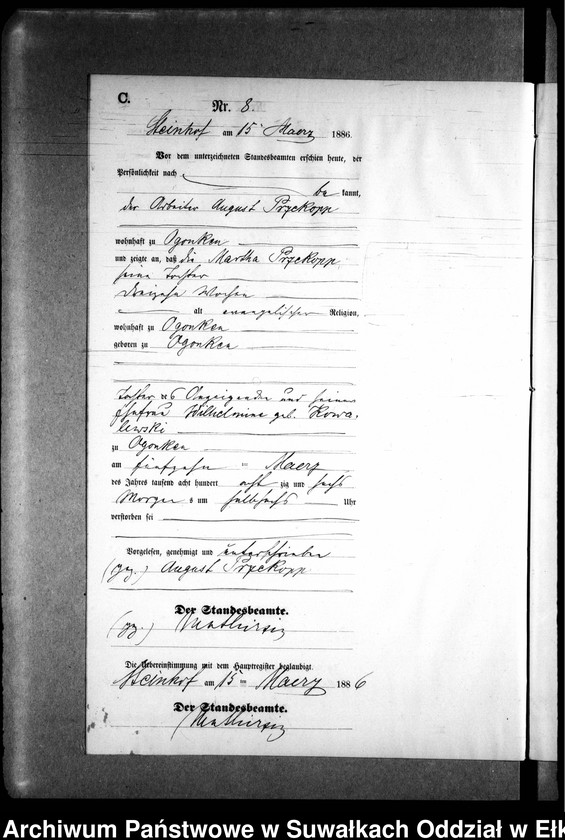 C.
Nr. 8.
Steinhof am 15 Maerz 1886.
Vor dem unterzeichneten Standesbeamten erschien heute, der
Persönlichkeit nach
be kannt,
der Arbeiter August Przekopp
wohnhaft zu Ogonken
und zeigte an, daß die Martha Przekopp
seine Tochter
dreizehn Wochen
alt evangelischer Religion,
wohnhaft zu Ogonken
geboren zu Ogonken
Tochter des Anzeigenden und seiner
Ehefrau Wilhelmine geb. Kowa-
lewski
zu Ogonken
am fünfzehn ten Maerz
des Jahres tausend acht hundert acht zig und sechs
Morgen s um halbsechs Uhr
verstorben sei
Vorgelesen, genehmigt und unterschrieben
(gez.) August Przekopp
Der Standesbeamte.
(gez.)
Die Uebereinstimmung mit dem Hauptregister beglaubigt.
Steinhof am 15 ten Maerz 1886
Der Standesbeamte.
Archiwum Państwowe w Suwałkach Oddział w Ełk